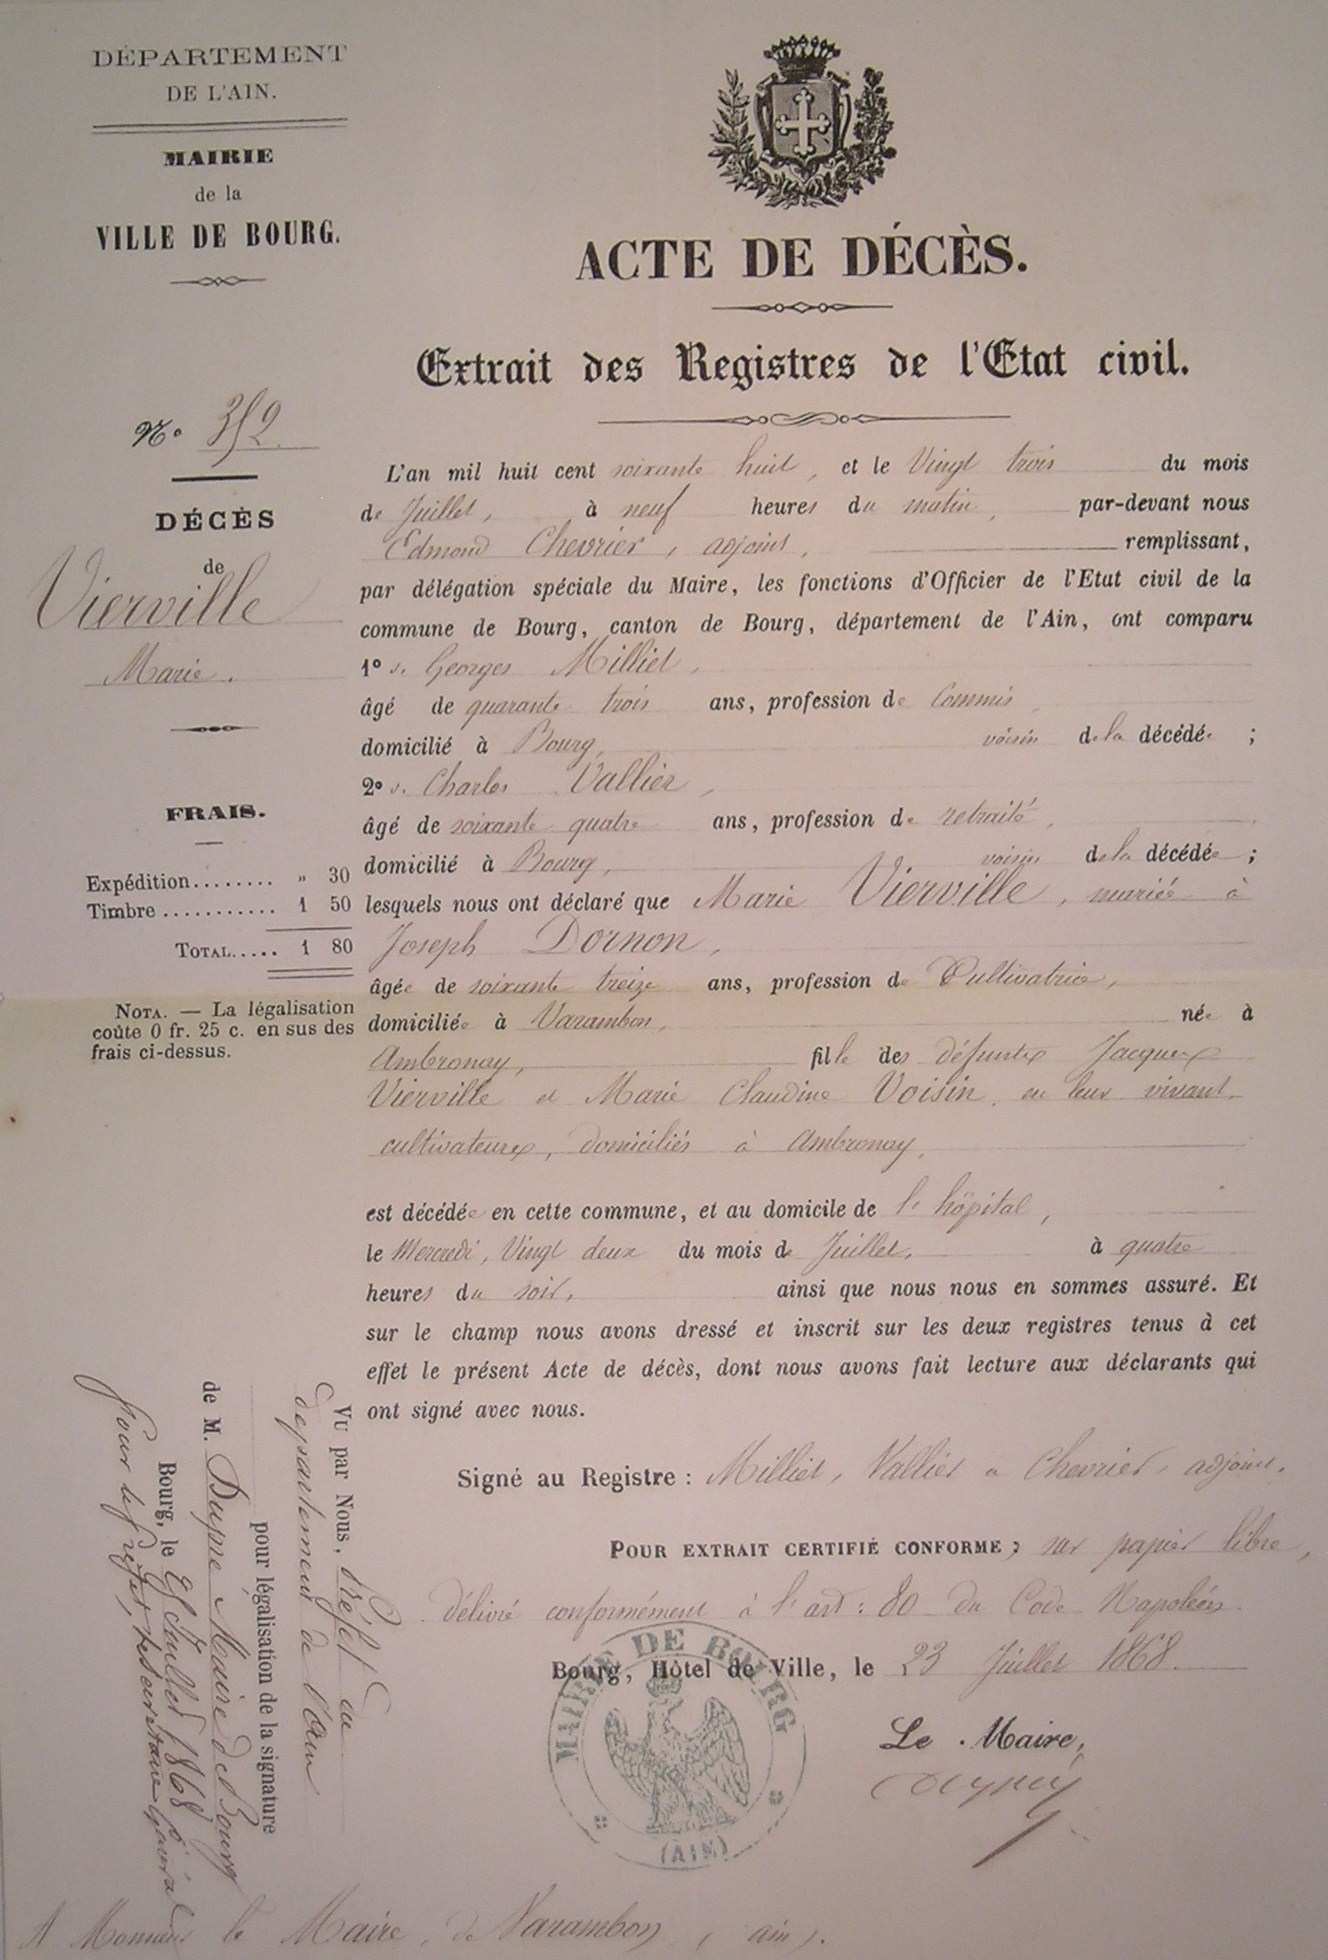 DÉPARTEMENT
DE L'AIN.
MAIRIE
de la
VILLE DE BOURG.
ACTE DE DÉCÈS.
Extrait des Registres de l'Etat civil.
N° 352
DÉCÈS
de
Vierville
Marie.
FRAIS.
Expédition........ " 30
Timbre ........... 1 50
TOTAL..... 1 80
NOTA. — La légalisation
coûte 0 fr. 25 c. en sus des
frais ci-dessus.
L'an mil huit cent soixante huit, et le Vingt trois du mois
de Juillet, à neuf heures du matin, par-devant nous
Edmond Chevrier, adjoint, remplissant,
par délégation spéciale du Maire, les fonctions d'Officier de l'Etat civil de la
commune de Bourg, canton de Bourg, département de l'Ain, ont comparu
1° s. Georges Milliet,
âgé de quarante trois ans, profession de Commis,
domicilié à Bourg, voisin de la décédée ;
2° s. Charles Vallier,
âgé de soixante quatre ans, profession de retraité,
domicilié à Bourg, voisin de la décédée ;
lesquels nous ont déclaré que Marie Vierville, mariée à
Joseph Dornon,
âgée de soixante treize ans, profession de Cultivatrice,
domiciliée à Varambon, née à
Ambronay, fille des défunts Jacques
Vierville et Marie Claudine Voisin, en leur vivant
cultivateurs, domiciliés à Ambronay,
est décédée en cette commune, et au domicile de l'hôpital,
le Mercredi, Vingt deux du mois de Juillet, à quatre
heures du soir, ainsi que nous nous en sommes assuré. Et
sur le champ nous avons dressé et inscrit sur les deux registres tenus à cet
effet le présent Acte de décès, dont nous avons fait lecture aux déclarants qui
ont signé avec nous.
Signé au Registre : Milliet, Vallier & Chevrier, adjoint.
POUR EXTRAIT CERTIFIÉ CONFORME, sur papier libre,
délivré conformément à l'art: 80 du Code Napoléon.
Bourg, Hôtel de Ville, le 23 Juillet 1868
Le Maire,
MAIRIE DE BOURG
(AIN)
VU par Nous, Préfet du
département de l'Ain
pour légalisation de la signature
de M. Dupré Maire de Bourg
Bourg, le 25 Juillet 1868
Pour le Préfet, le Secrétaire Général
A Monsieur le Maire, de Varambon, (ain).